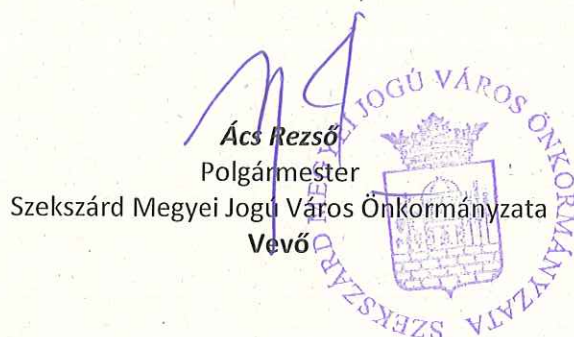 Ács Rezső
Polgármester
Szekszárd Megyei Jogú Város Önkormányzata
Vevő
SZEKSZÁRD MEGYEI JOGÚ VÁROS ÖNKORMÁNYZATA